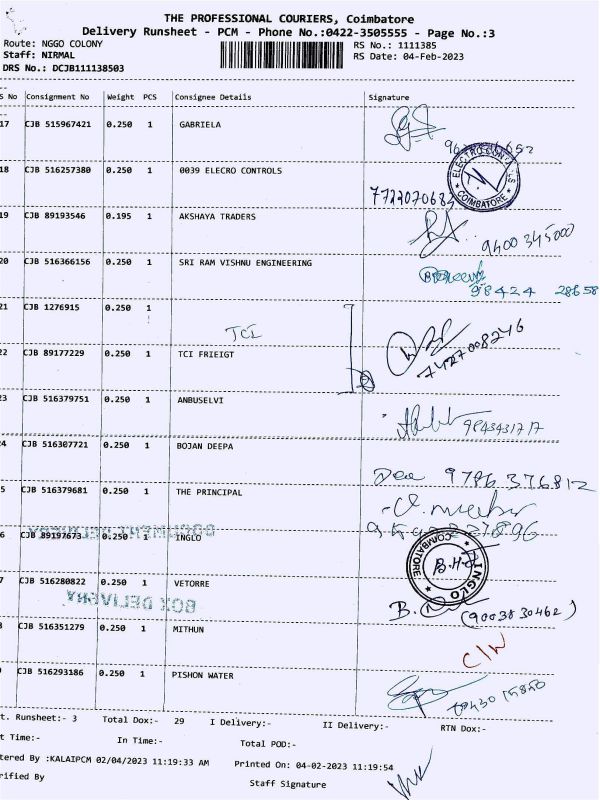 THE PROFESSIONAL COURIERS, Coimbatore
Delivery Runsheet - PCM - Phone No.:0422-3505555 - Page No.:3
Route: NGGO COLONY RS No.: 1111385
Staff: NIRMAL RS Date: 04-Feb-2023
DRS No.: DCJB111138503
S No Consignment No Weight PCS Consignee Details Signature
17 CJB 515967421 0.250 1 GABRIELA
18 CJB 516257380 0.250 1 0039 ELECRO CONTROLS
ELECTRO CONTROLS
COIMBATORE
19 CJB 89193546 0.195 1 AKSHAYA TRADERS
9400345000
20 CJB 516366156 0.250 1 SRI RAM VISHNU ENGINEERING
98424 28658
21 CJB 1276915 0.250 1
TCI
22 CJB 89177229 0.250 1 TCI FRIEIGT
7427008246
23 CJB 516379751 0.250 1 ANBUSELVI
24 CJB 516307721 0.250 1 BOJAN DEEPA
Dea 9786 376812
5 CJB 516379681 0.250 1 THE PRINCIPAL
6 CJB 89197673 0.250 1 INGLO
DOCUMENT DELIVERY
COIMBATORE
INGLO
7 CJB 516280822 0.250 1 VETORRE
BOX DELIVERY
B. (9003830462)
CJB 516351279 0.250 1 MITHUN
C/N
CJB 516293186 0.250 1 PISHON WATER
t. Runsheet:- 3 Total Dox:- 29 I Delivery:- II Delivery:- RTN Dox:-
t Time:- In Time:- Total POD:-
tered By :KALAIPCM 02/04/2023 11:19:33 AM Printed On: 04-02-2023 11:19:54
rified By Staff Signature